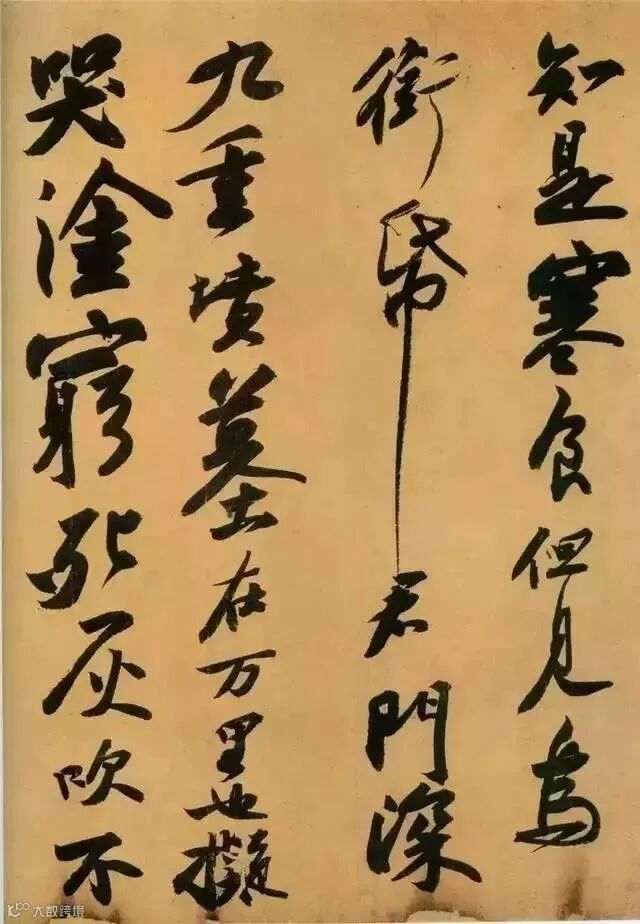 知是寒食但見烏
銜帋君門深
九重墳墓在万里也擬
哭塗窮死灰吹不
大数跨境